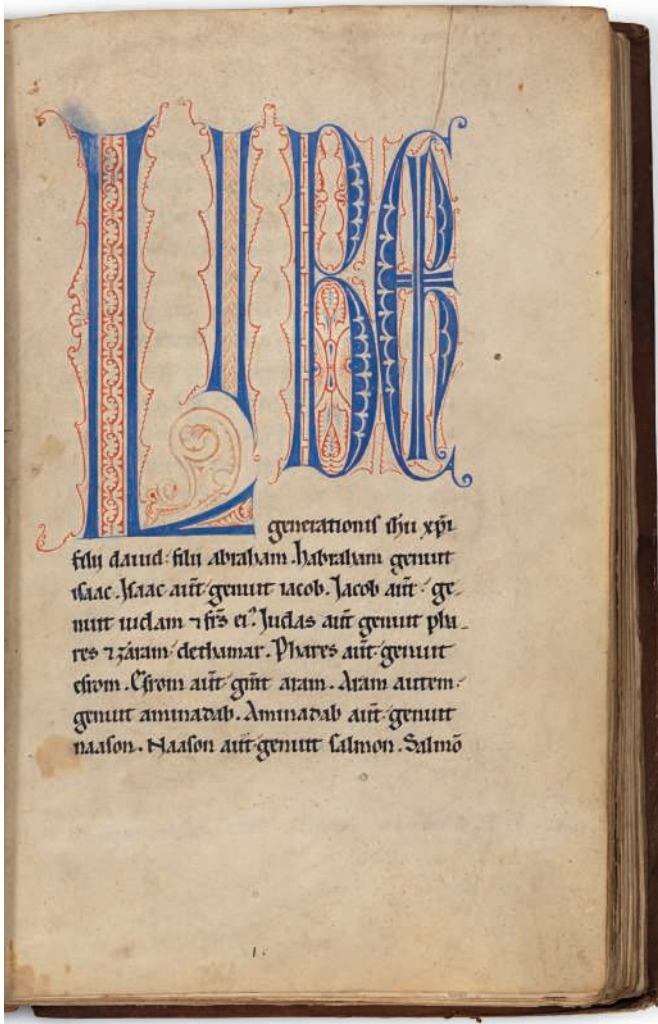 LIBE
generationis ihu xpi
filii dauid. filii abraham. habraham genuit
isaac. Isaac aut̄ genuit iacob. Jacob aut̄ ge-
nuit iudam ⁊ fr̄s ei⁹. Judas aut̄ genuit pha-
res ⁊ zaram dethamar. Phares aut̄ genuit
esrom. Esrom aut̄ gn̄it aram. Aram autem
genuit aminadab. Aminadab aut̄ genuit
naason. Naason aut̄ genuit salmon. Salmō
1.